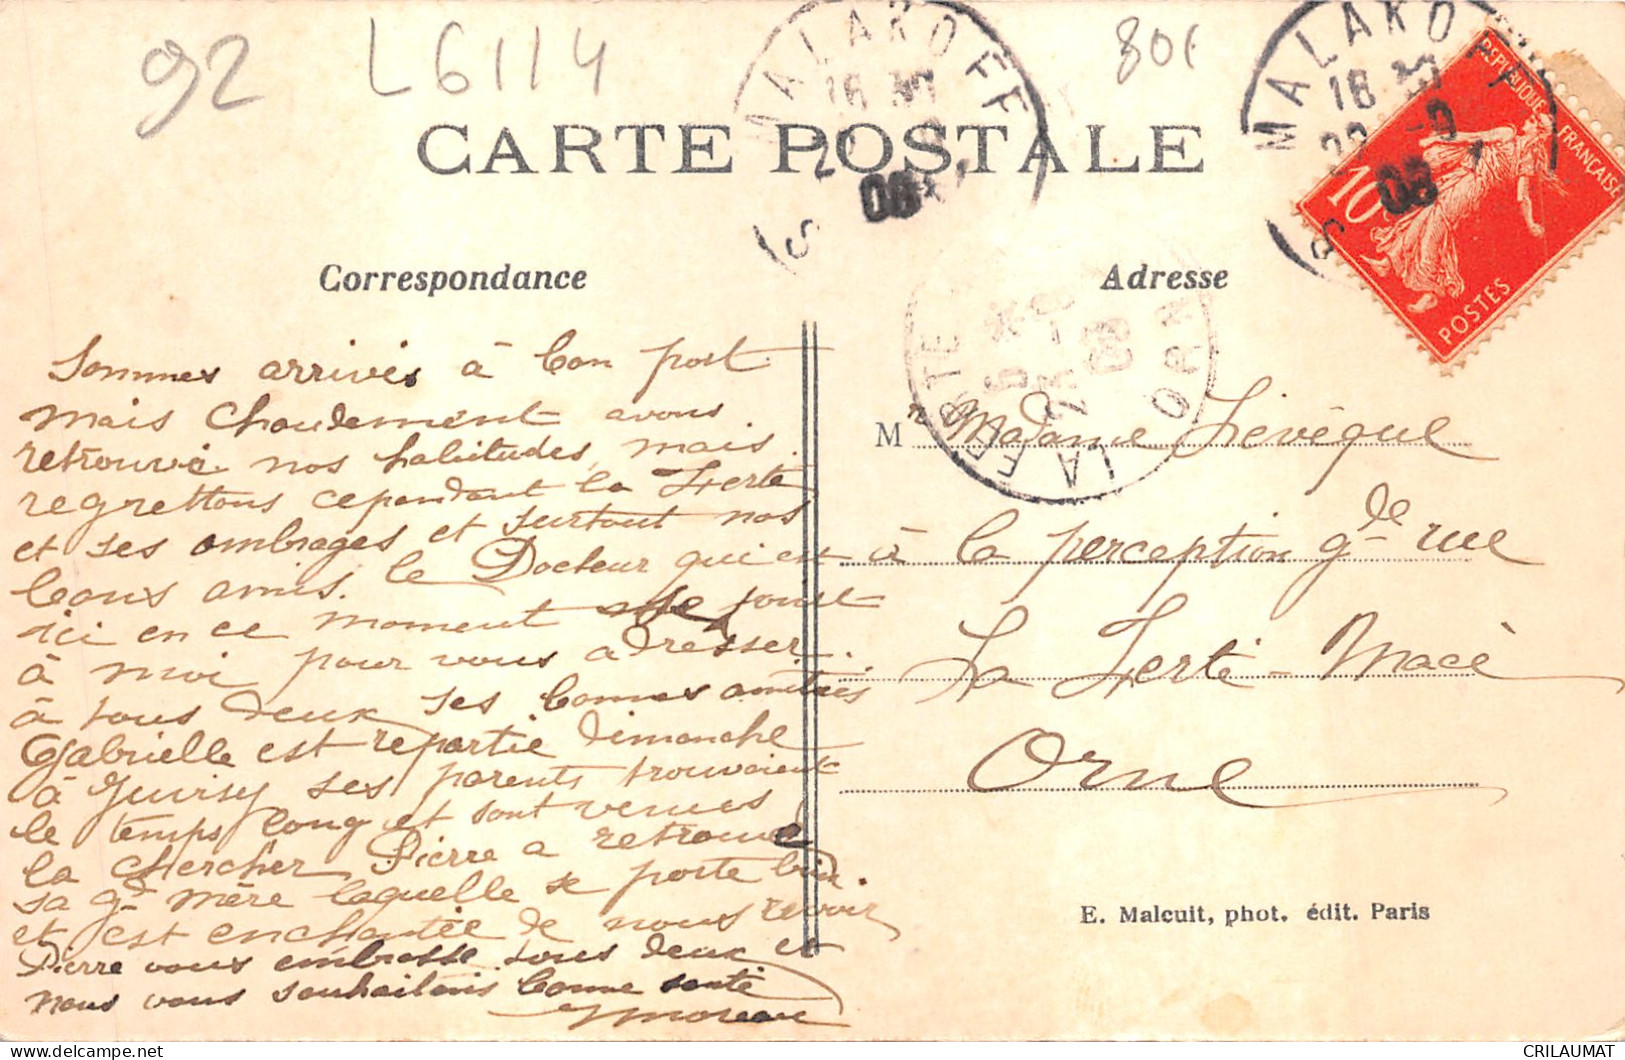 92
L6114
80
MALAKOFF
MALAKOFF
16 30
22 -9
08
RÉPUBLIQUE FRANÇAISE
10c
POSTES
CARTE POSTALE
Correspondance
Adresse
LA FERTÉ
ORNE
23
08
Sommes arrivés à bon port
mais chaudement avons
retrouvé nos habitudes, mais
regrettons cependant la Ferté
et ses ombrages et surtout nos
bons amis. le Docteur qui est
ici en ce moment se joint
à moi pour vous adresser
à tous deux ses bonnes amitiés
Gabrielle est repartie dimanche
à Juvisy ses parents trouvaient
le temps long et sont venus
la chercher Pierre a retrouvé
sa gde mère laquelle se porte bien
et est enchantée de nous revoir
Pierre vous embrasse tous deux et
nous vous souhaitons bonne santé
Moreau
M Madame Lévêque
à la perception gde rue
La Ferté-Macé
Orne
E. Malcuit, phot. édit. Paris
CRILAUMAT